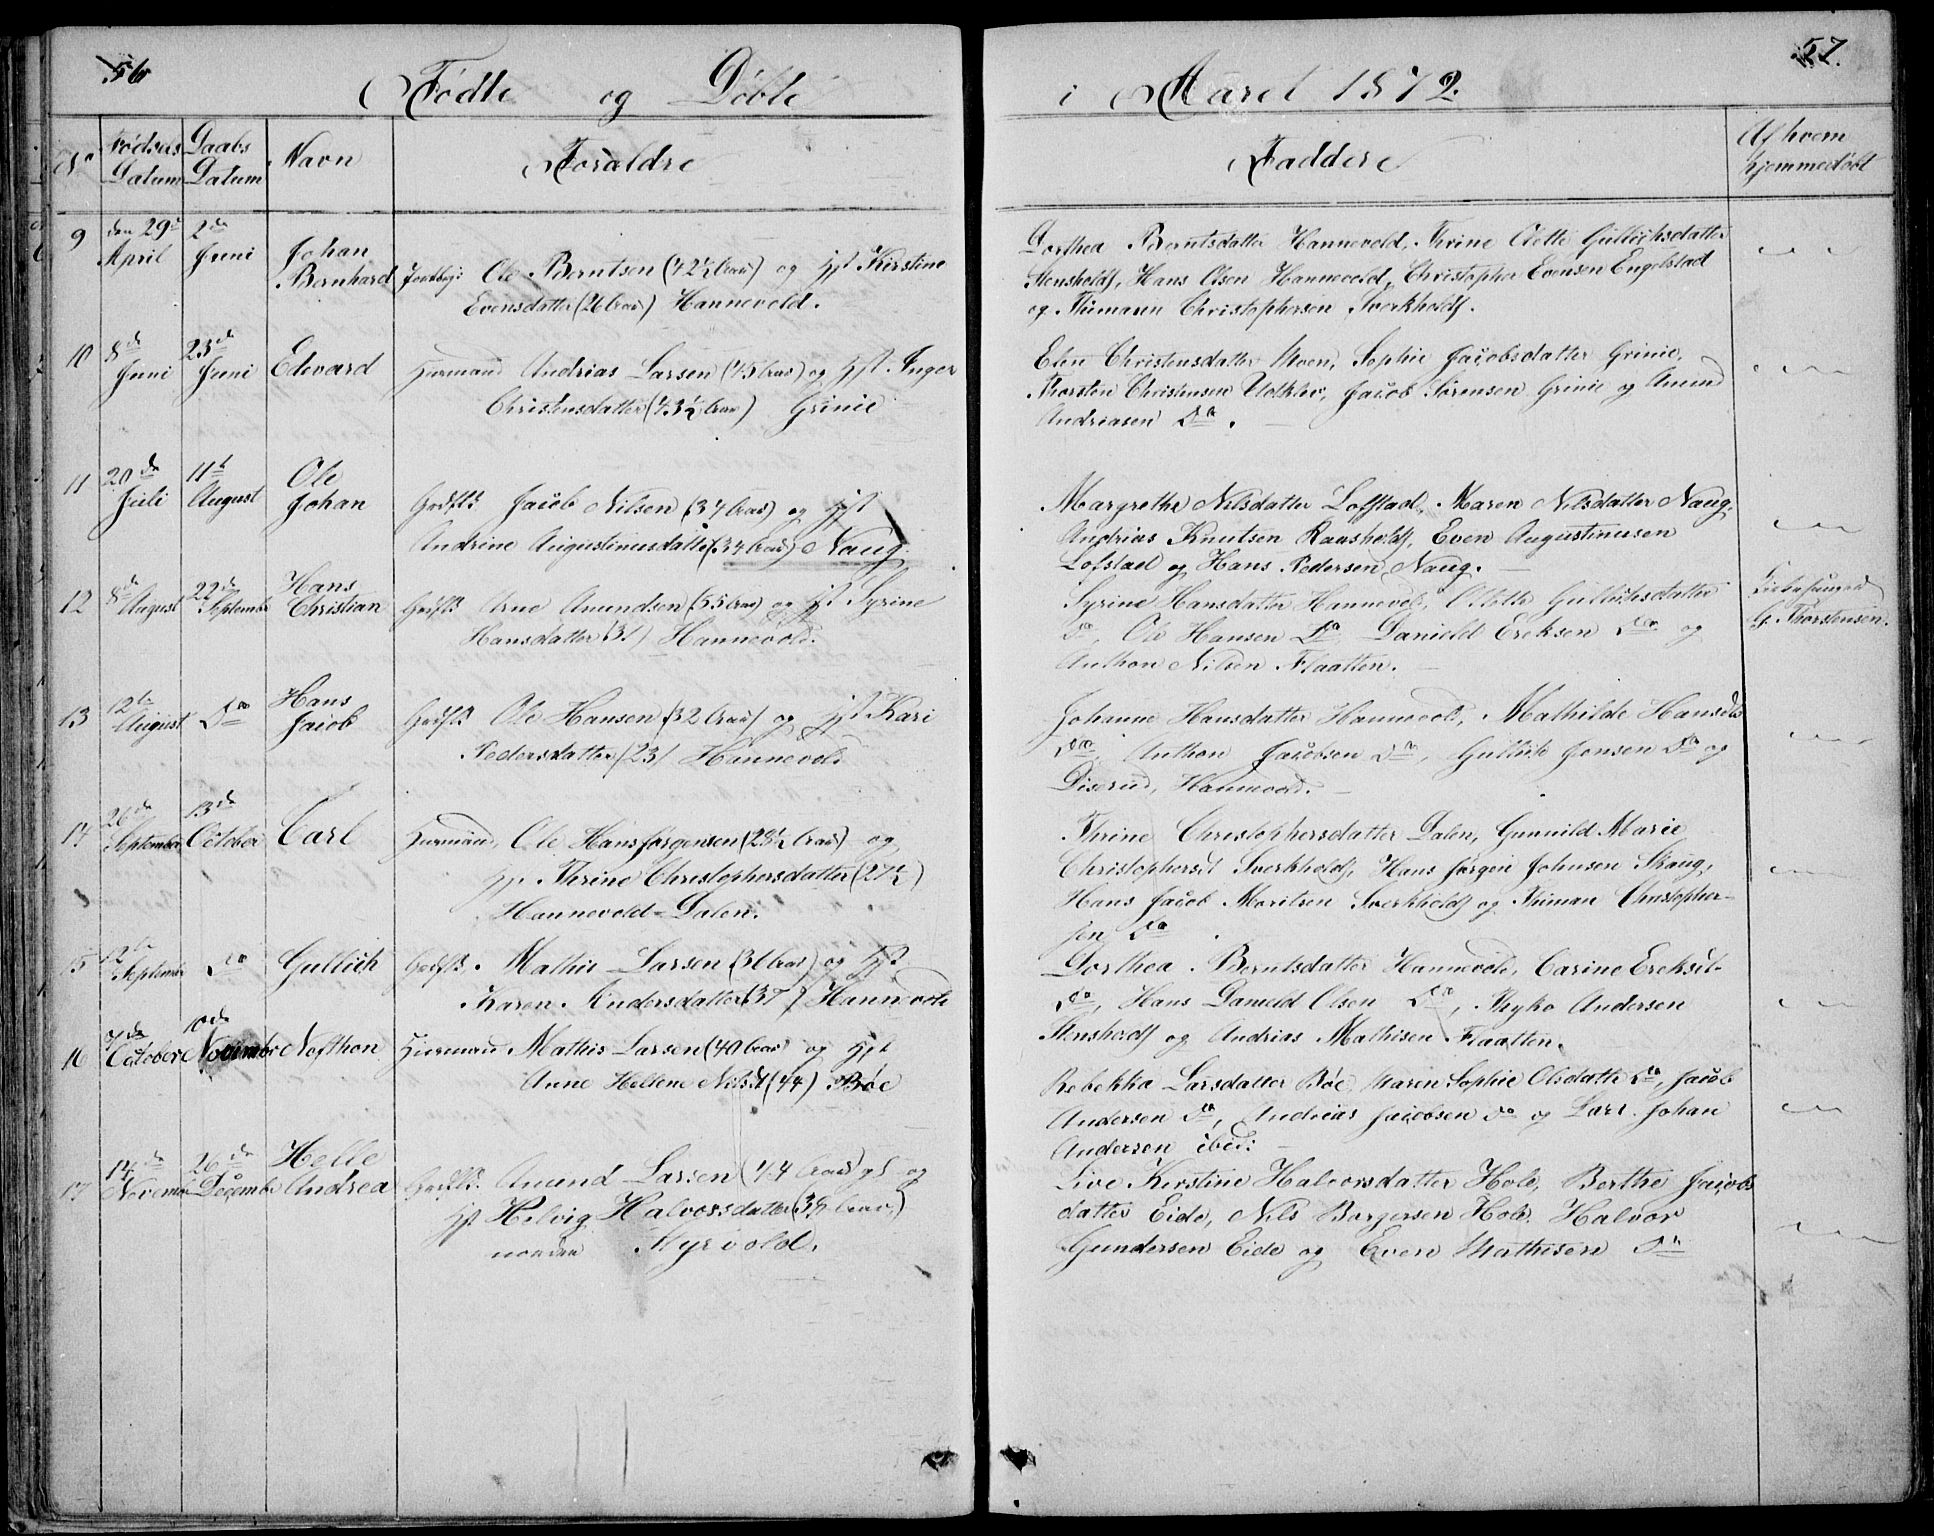 56
57.
Fødte og Døbte i Aaret 1872.
No
Fødsels Datum
Daabs Datum
Navn
Foraldre
Faddere
Af hvem hjemmedøbt
9
den 29de April
2de Juni
Johan Bernhard
Ole Berntsen (42½ Aar) og hst Kirstine
Evensdatter (26 Aar) Hannevold.
Dorthea Berntsdatter Hannevold, Thrine Olette Gulliksdatter
Stensholdt, Hans Olsen Hannevold, Christopher Evensen Engelstad
og Thimann Christophersen Sverkholdt.
10
8de Juni
23de Juni
Edvard
Huusmand Andrias Larsen (45 Aar) og hst. Inger
Christensdatter (43½ Aar) Grinie
Elen Christensdatter Moen, Sophie Jacobsdatter Grinie,
Thorsten Christensen Udklev, Jacob Sørensen Grinie og Anund
Andriasen Do.
11
20de Juli
11te August
Ole Johan
Grdfst. Jacob Nilsen (37 Aar) og hst
Andrine Augustinusdatter (34 Aar) Naug.
Margrethe Nilsdatter Lofstad, Maren Nilsdatter Naug,
Andrias Knutsen Raasholdt, Even Augustinusen
Lofstad og Hans Pedersen Naug.
12
8de August
22de Septembr
Hans Christian
Grdfst. Arne Amundsen (35 Aar) og hst Syrine
Hansdatter (31) Hannevold.
Syrine Hansdatter Hannevold, Olette Gulliksdatter
Do, Ole Hansen Do Danield Ereksen Do og
Anthon Nilsen Flaatten.
Kirkesanger
G. Thorstensen.
13
12te August
Do
Hans Jacob
Grdfst. Ole Hansen (32 Aar) og hst Kari
Pedersdatter (23) Hannevold
Johanne Hansdatter Hannevold, Mathilde Hansdtr
Do Anthon Jacobsen Do, Gullik Jensen Do og
Diserud, Hannevold.
14
26de September
13de October
Carl
Huusmand, Ole Hansjørgensen (28½ Aar) og
hst Thrine Christophersdatter (27½)
Hannevold-Dalen.
Thrine Christophersdatter Dalen, Gunnild Marie
Christophersdt Sverkholdt, Hans Jørgen Johnsen Skaug,
Hans Jacob Moritsen Sverkholdt og Thiman Christopher-
sen Do.
15
12te Septembr
Do
Gullich
Grdfst. Mathis Larsen (31 Aar) og hst
Karen Andersdatter (37) Hannevold
Dorthea Berntsdatter Hannevold, Carine Ereksdt
Do, Hans Danield Olsen Do, Thyko Andersen
Stensholdt og Andrias Mathisen Flaatten.
16
7de October
10de Novembr
Nefthon
Huusmand Mathis Larsen (40 Aar) og hst
Anne Heltene Nilsdt (44) Bøe
Rebekka Larsdatter Bøe, Maren Sophie Olsdatter Do, Jacob
Andersen Do, Andreas Jacobsen Do og Lars Johan
Andersen ibid:
17
14de Novembr
26de Decembr
Helle Andrea
Grdfst. Anund Larsen (44 Aar) gl og
hst Helvig Halvorsdatter
nordre Myrvold.
Live Kirstine Halvorsdatter Hole, Berthe Jacobs
datter Eide, Nils Borgersen Hole, Halvor
Gundersen Eide og Even Mathisen Do